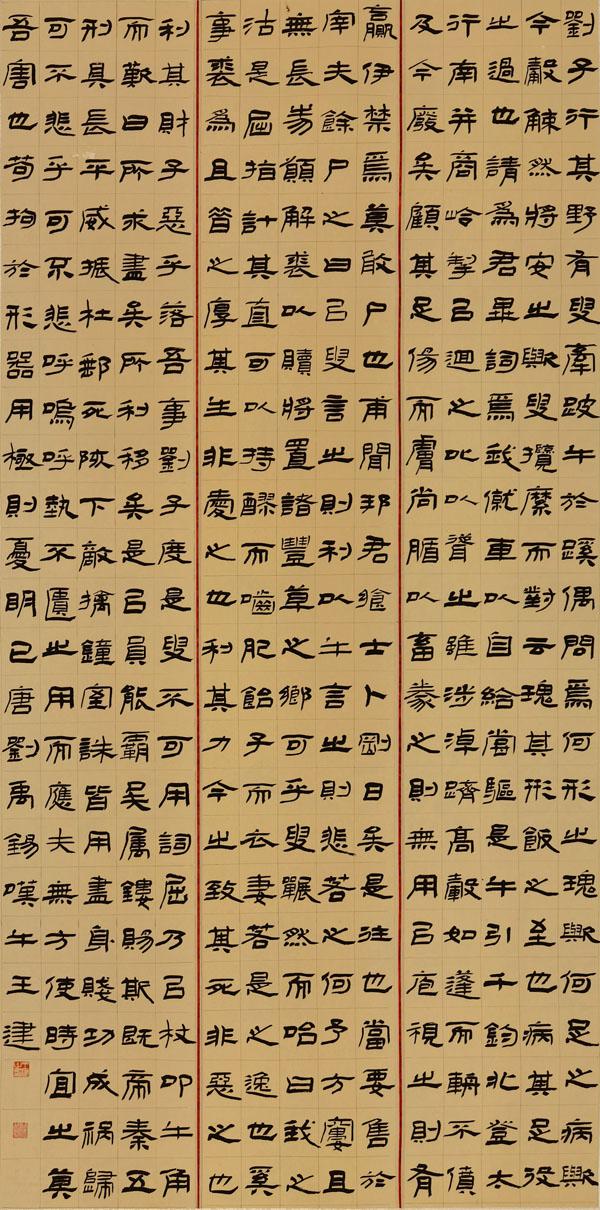 劉子行其野有叟牽跛牛於蹊偶問焉何形之瑰歟何足之病歟
今觳觫然將安之歟叟攬縻而對云瑰其形飯之至也病其足役
之過也請為君畢詞焉我僦車以自給嘗驅是牛引千鈞北登太
行南并商岭掣以迴之叱以聳之雖涉淖躋高轂如蓬而輈不僨
及今廢矣顧其足傷而膚尚腯以畜豢之則無用以庖視之則有
贏伊禁焉莫敢尸也甫聞邦君饗士卜剛日矣是往也當要售於
宰夫餘尸之曰以叟言之則利以牛言之則悲若之何予方窶且
無長物願解裘以贖將置諸豐草之鄉可乎叟囅然而咍曰我之
沽是屈指計其直可以持醪而齧肥飴子而衣妻若是之逸也奚
事裘為且昔之厚其生非愛之也利其力今之致其死非惡之也
利其財子惡乎落吾事劉子度是叟不可用詞屈乃以杖叩牛角
而歎曰所求盡矣所利移矣是以員能霸吳属鏤賜斯既帝秦五
刑具長平威振杜郵死陔下敵擒鐘室誅皆用盡身賤功成禍歸
可不悲乎可不悲呼嗚呼執不匱之用而應夫無方使時宜之莫
吾害也苟拘於形器用極則憂明已唐劉禹錫嘆牛王建